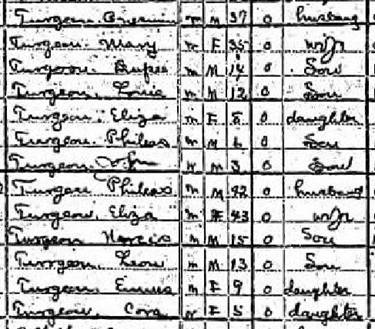 Turgeon m M 37 0 husband
Turgeon Mary m F 35 0 wife
Turgeon m M 14 0 Son
Turgeon Louis m M 12 0 Son
Turgeon Eliza m F 8 0 daughter
Turgeon Phileas m M 6 0 Son
Turgeon M 3 0 Son
Turgeon Phileas m M 42 0 husband
Turgeon Eliza m F 43 0 wife
Turgeon Narcis m M 15 0 Son
Turgeon Leon m M 13 0 Son
Turgeon Emma m F 9 0 daughter
Turgeon Cora F 5 0 daughter